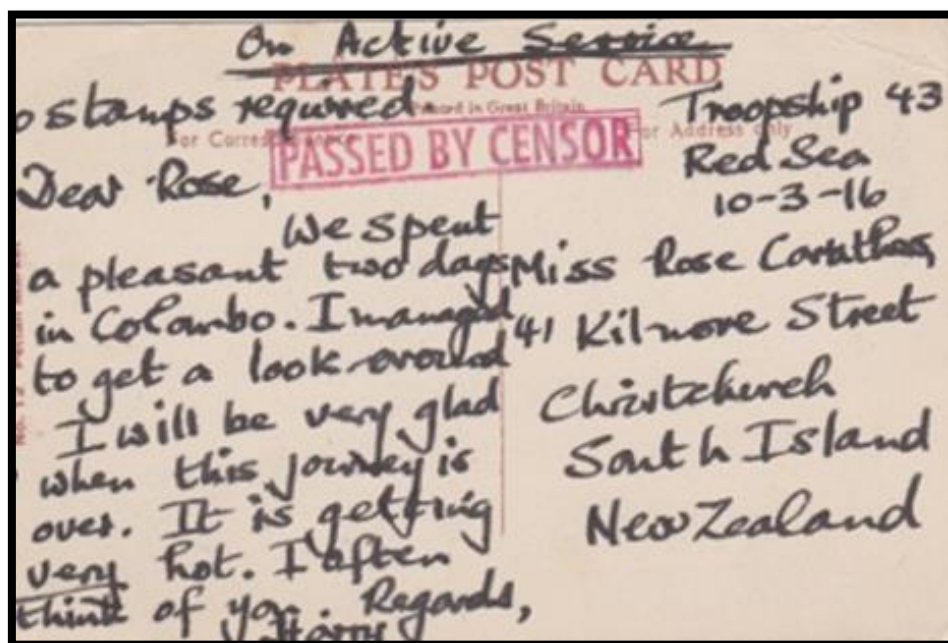 On Active Service
PLATE'S POST CARD
o stamps required.
Printed in Great Britain
For Address only
PASSED BY CENSOR
Dear Rose,
We spent
a pleasant two days
in Colombo. I managed
to get a look around
I will be very glad
when this journey is
over. It is getting
very hot. I often
think of you. Regards,
Harry
Troopship 43
Red Sea
10-3-16
Miss Rose
41 Kilmore Street
Christchurch
South Island
New Zealand